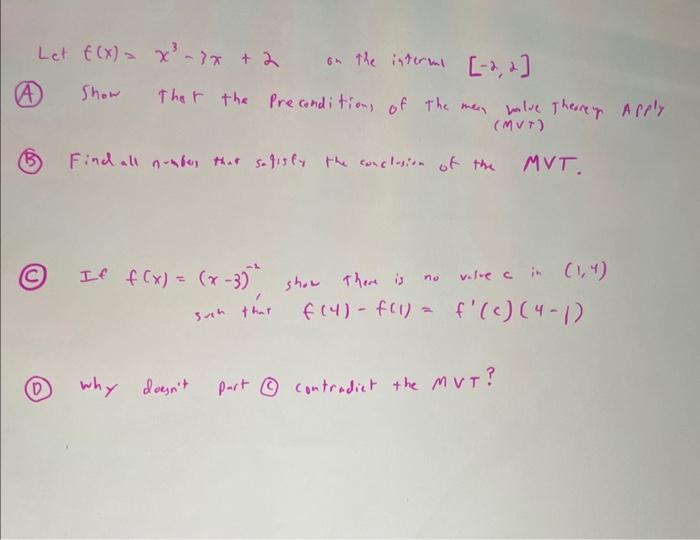 Let f(x) = x³ - 3x + 2 on the interval [-2, 2]
Ⓐ Show that the Preconditions of the mean value Theorem Apply
(MVT)
Ⓑ Find all numbers that satisfy the conclusion of the MVT.
Ⓒ If f(x) = (x-3)⁻², show there is no value c in (1,4)
such that f(4) - f(1) = f'(c)(4-1)
Ⓓ why doesn't part Ⓒ contradict the MVT?